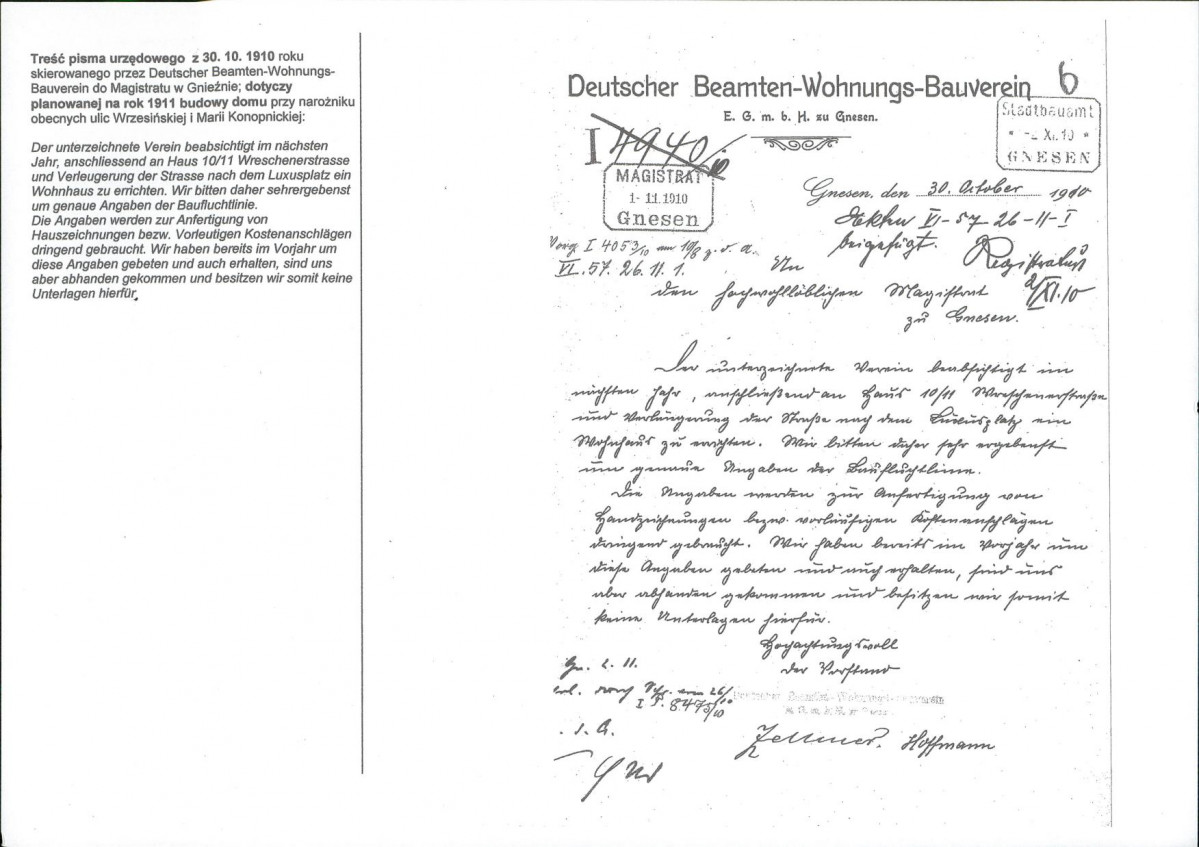 Treść pisma urzędowego z 30. 10. 1910 roku
skierowanego przez Deutscher Beamten-Wohnungs-
Bauverein do Magistratu w Gnieźnie; dotyczy
planowanej na rok 1911 budowy domu przy narożniku
obecnych ulic Wrzesińskiej i Marii Konopnickiej:
Der unterzeichnete Verein beabsichtigt im nächsten
Jahr, anschliessend an Haus 10/11 Wreschenerstrasse
und Verleugerung der Strasse nach dem Luxusplatz ein
Wohnhaus zu errichten. Wir bitten daher sehrergebenst
um genaue Angaben der Baufluchtlinie.
Die Angaben werden zur Anfertigung von
Hauszeichnungen bezw. Vorleutigen Kostenanschlägen
dringend gebraucht. Wir haben bereits im Vorjahr um
diese Angaben gebeten und auch erhalten, sind uns
aber abhanden gekommen und besitzen wir somit keine
Unterlagen hierfür.
6
Deutscher Beamten-Wohnungs-Bauverein
E. G. m. b. H. zu Gnesen.
Stadtbauamt
XI. 10
GNESEN
I 4940
10
MAGISTRAT
1- 11.1910
Gnesen
Gnesen, den 30. October 1910
Akten VI-57 26-11-I
beigefügt.
Registratur
2/XI.10
Vorg. I 4053/10 am 10/8 z. d. A.
VI. 57. 26. 11. 1.
An
den hochwohllöblichen Magistrat
zu Gnesen.
Der unterzeichnete Verein beabsichtigt im
nächsten Jahr, anschließend an Haus 10/11 Wreschenerstraße
und Verlängerung der Straße nach dem Luxusplatz ein
Wohnhaus zu errichten. Wir bitten daher sehr ergebenst
um genaue Angaben der Baufluchtlinie.
Die Angaben werden zur Anfertigung von
Handzeichnungen bezw. vorläufigen Kostenanschlägen
dringend gebraucht. Wir haben bereits im Vorjahr um
diese Angaben gebeten und auch erhalten, sind uns
aber abhanden gekommen und besitzen wir somit
keine Unterlagen hierfür.
Hochachtungsvoll
der Vorstand
Gn. 2. 11.
durch Schr. vom 26/10
I P. 8475/10
Deutscher Beamten-Wohnungs-Bauverein
Hoffmann